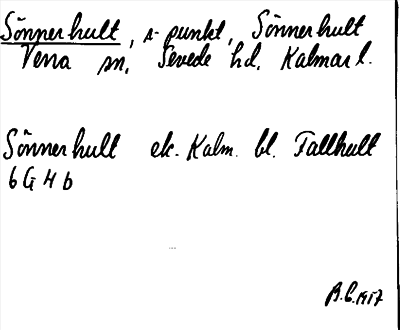 Sönnerhult, s-punkt, Sönnerhult
Vena sn, Sevede hd, Kalmar l.
Sönnerhult ek. Kalm. bl. Fallhult
6G 4b